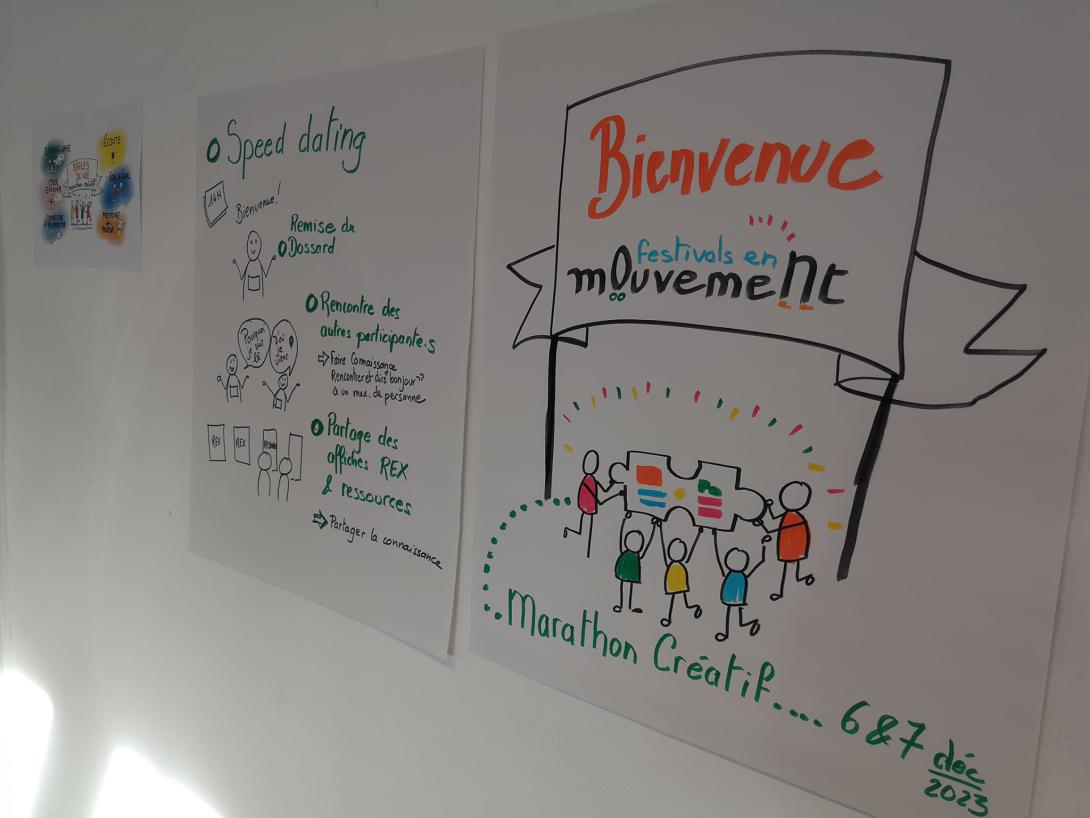 ÉCOUTE
RÈGLES
DE VIE
Speed dating
14H
Bienvenue!
Remise du
Dossard
Rencontre des
autres participante.s
Pourquoi
je suis
là
D'où
je
viens
⇒ Faire Connaissance
Rencontrer et dire "bonjour"
à un max. de personne
REX
REX
Partage des
affiches REX
& ressources
⇒ Partager la connaissance
Bienvenue
festivals en
mOuvemeNt
Marathon Créatif.... 6&7 déc
2023